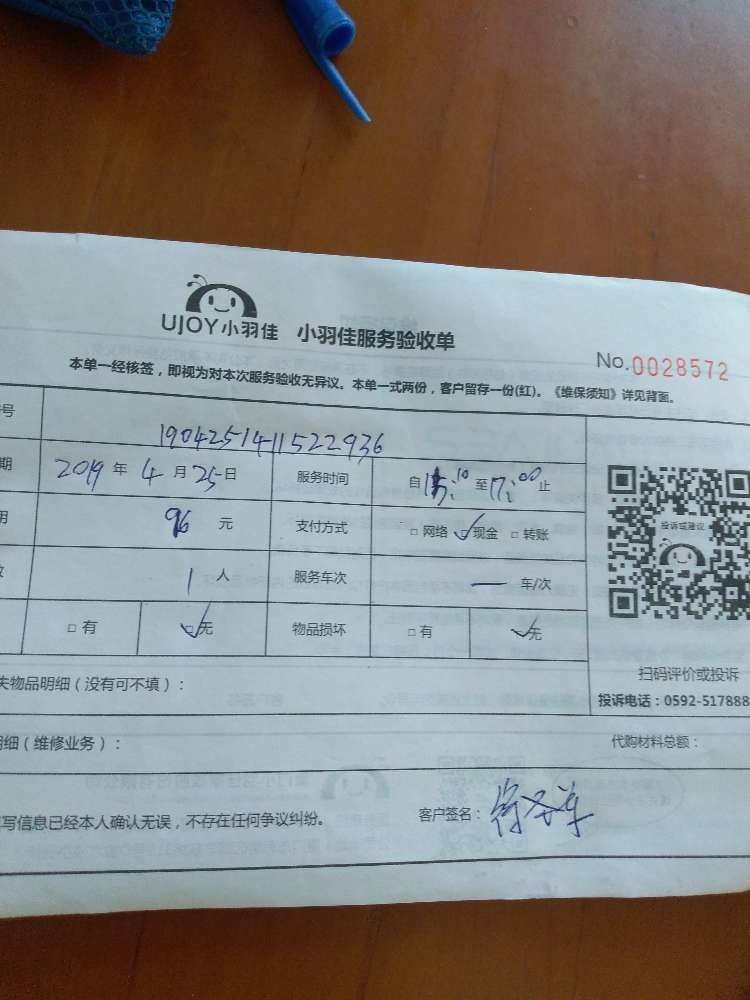 UJOY小羽佳 小羽佳服务验收单
No.0028572
本单一经核签，即视为对本次服务验收无异议。本单一式两份，客户留存一份(红)。《维保须知》详见背面。
号 1904251411522936
期 2019 年 4 月 25 日 服务时间 自 15:10 至 17:00 止
用 96 元 支付方式 □ 网络 ☑ 现金 □ 转账
数 1 人 服务车次 一 车/次
□ 有 ☑ 无 物品损坏 □ 有 ☑ 无
投诉或建议
扫码评价或投诉
投诉电话：0592-517888
失物品明细（没有可不填）：
明细（维修业务）： 代购材料总额：
写信息已经本人确认无误，不存在任何争议纠纷。 客户签名：